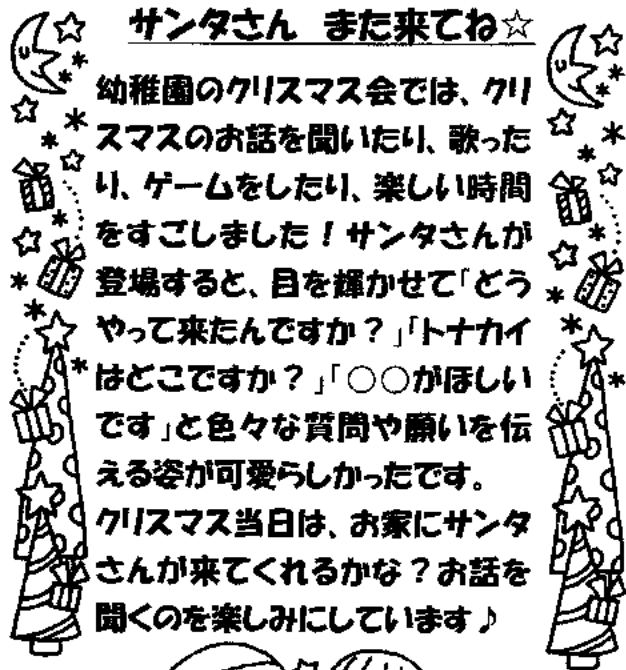 サンタさん　また来てね☆
幼稚園のクリスマス会では、クリ
スマスのお話を聞いたり、歌った
り、ゲームをしたり、楽しい時間
をすごしました！サンタさんが
登場すると、目を輝かせて「どう
やって来たんですか？」「トナカイ
はどこですか？」「○○がほしい
です」と色々な質問や願いを伝
える姿が可愛らしかったです。
クリスマス当日は、お家にサンタ
さんが来てくれるかな？お話を
聞くのを楽しみにしています♪